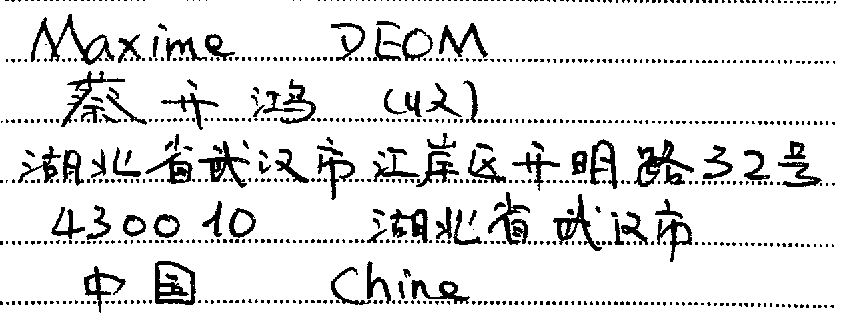 Maxime DEOM
蔡开鸿 (收)
湖北省武汉市江岸区开明路32号
430010 湖北省武汉市
中国 Chine